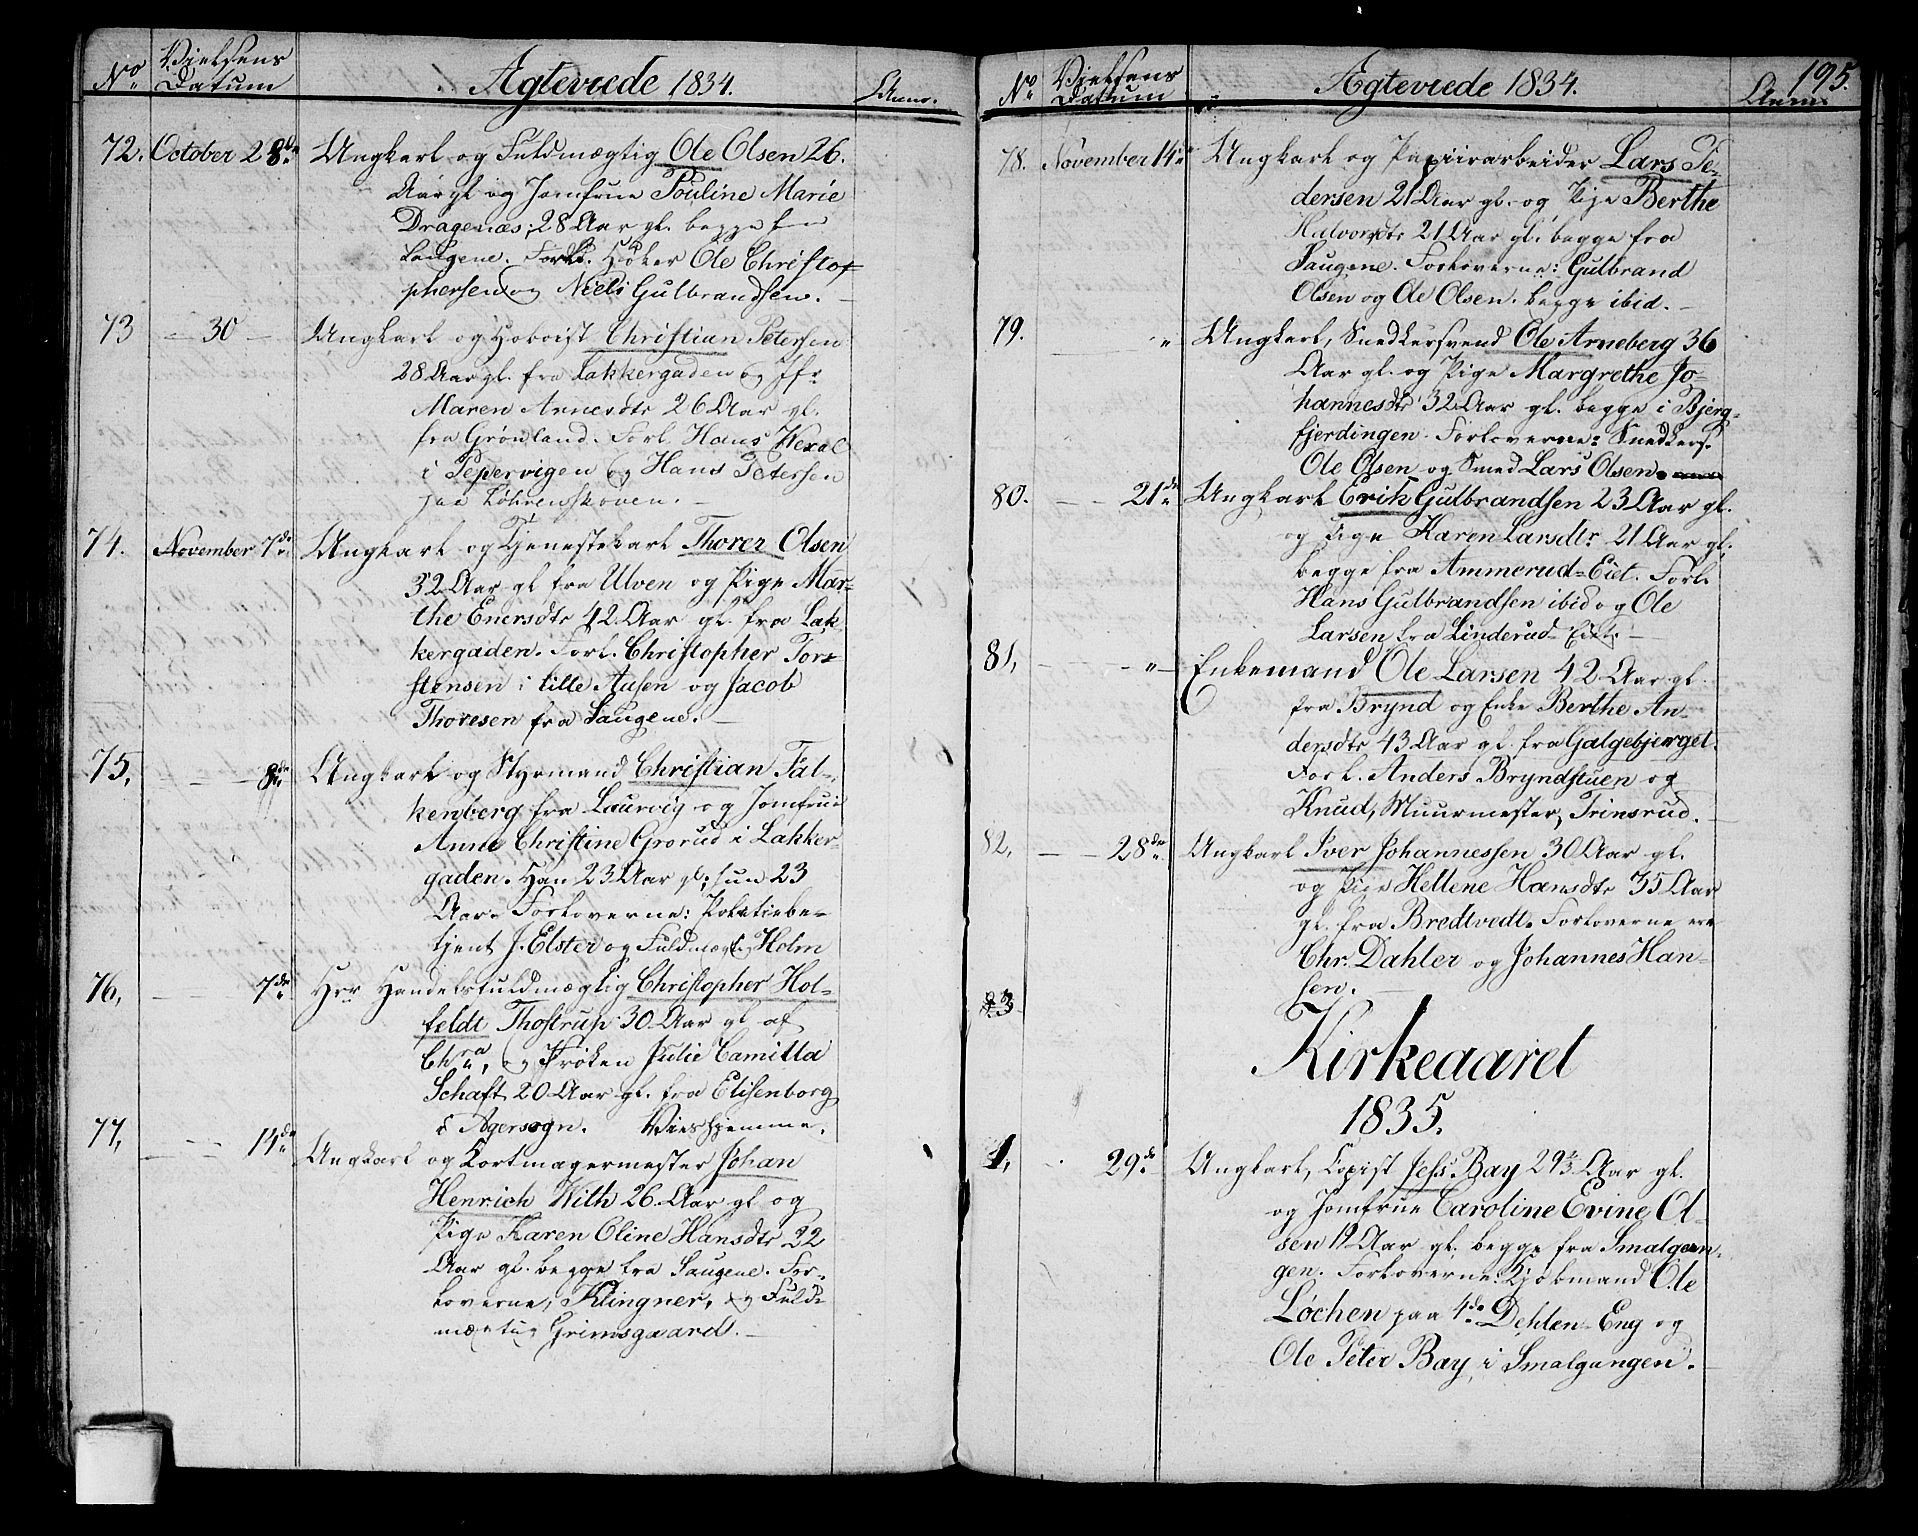 No Vielsens Datum Ægteviede 1834. Anm.
72. October 28de Ungkarl og Fuldmægtig Ole Olsen 26.
Aar gl. og Jomfrue Pouline Marie
Dragenæs, 28 Aar gl. begge fra
Laugene. Forl. Høker Ole Christof-
phersen og Niels Gulbrandsen.
73 - 30 - Ungkarl og Hoboist Christian Petersen
28 Aar gl. fra Lakkergaden og Jfr
Maren Arnesdtr 26 Aar gl.
fra Grønland. Forl. Hans Wexal
i Pepervigen og Hans Petersen
paa Løkrenskoven.
74. November 7de Ungkarl og Tjenestekarl Thorer Olsen
32 Aar gl fra Ulven og Pige Mar-
the Enersdtr 42 Aar gl. fra Lak-
kergaden. Forl. Christopher Tor-
stensen i lille Aasen og Jacob
Thoresen fra Laugene.
75, - 8de Ungkarl og Styrmand Christian Fal-
kenberg fra Laurvig og Jomfrue
Anne Christine Grorud i Lakker-
gaden. Han 23 Aar gl; hun 23
Aar. Forloverne: Politiebe-
tjent J. Elster og Fuldmægt. Holm
76, - 7de Hrr Handelsfuldmægtig Christopher Hol-
feldt Thostrup 30 Aar gl af
Chra, og Frøken Julie Camilla
Schaft 20 Aar gl. fra Elisenborg
i Agersogn. Vies hjemme.
77, - 14de Ungkarl og Kortmagermester Johan
Henrich With 26 Aar gl og
Pige Karen Oline Hansdtr 22
Aar gl. begge fra Laugene. For-
loverne, Klingner, og Fuld-
mægtig Grimsgaard.
195.
No Vielsens Datum Ægteviede 1834. Anm.
78. November 14de Ungkarl og Papiirarbeider Lars Pe-
dersen 21 Aar gl. og Pige Berthe
Halvorsdtr 21 Aar gl. begge fra
Saugene. Forloverne: Gulbrand
Olsen og Ole Olsen. begge ibid.
79. " Ungkarl, Snedkersvend Ole Arneberg 36
Aar gl. og Pige Margrethe Jo-
hannesdtr 32 Aar gl. begge i Bjerg-
fjerdingen. Forloverne: Snedkers.
Ole Olsen og Smed Lars Olsen.
80. - 21de Ungkarl Erik Gulbrandsen 23 Aar gl.
og Pige Karen Larsdtr 21 Aar gl.
begge fra Ammerud-Eiet. Forl.
Hans Gulbrandsen ibid og Ole
Larsen fra Linderud-Eiet.
81, - " Enkemand Ole Larsen 42 Aar gl.
fra Brynd og Enke Berthe An-
dersdtr 43 Aar gl. fra Galgebjerget.
Forl. Anders Bryndstuen og
Knud, Muurmester, Trinsrud.
82, - 28de Ungkarl Iver Johannessen 30 Aar gl.
og Pige Hellene Hansdtr 35 Aar
gl. fra Bredtvedt. Forloverne ere
Chr. Dahler og Johannes Han-
sen.
83
Kirkeaaret
1835.
1, 29de Ungkarl, Copist Jess Bay 29⅔ Aar gl.
og Jomfrue Caroline Evine Ol-
sen 19 Aar gl. begge fra Smalgan-
gen. Forloverne: Kjøbmand Ole
Løchen paa 4de Dehlen-Eng og
Ole Peter Bay i Smalgangen.